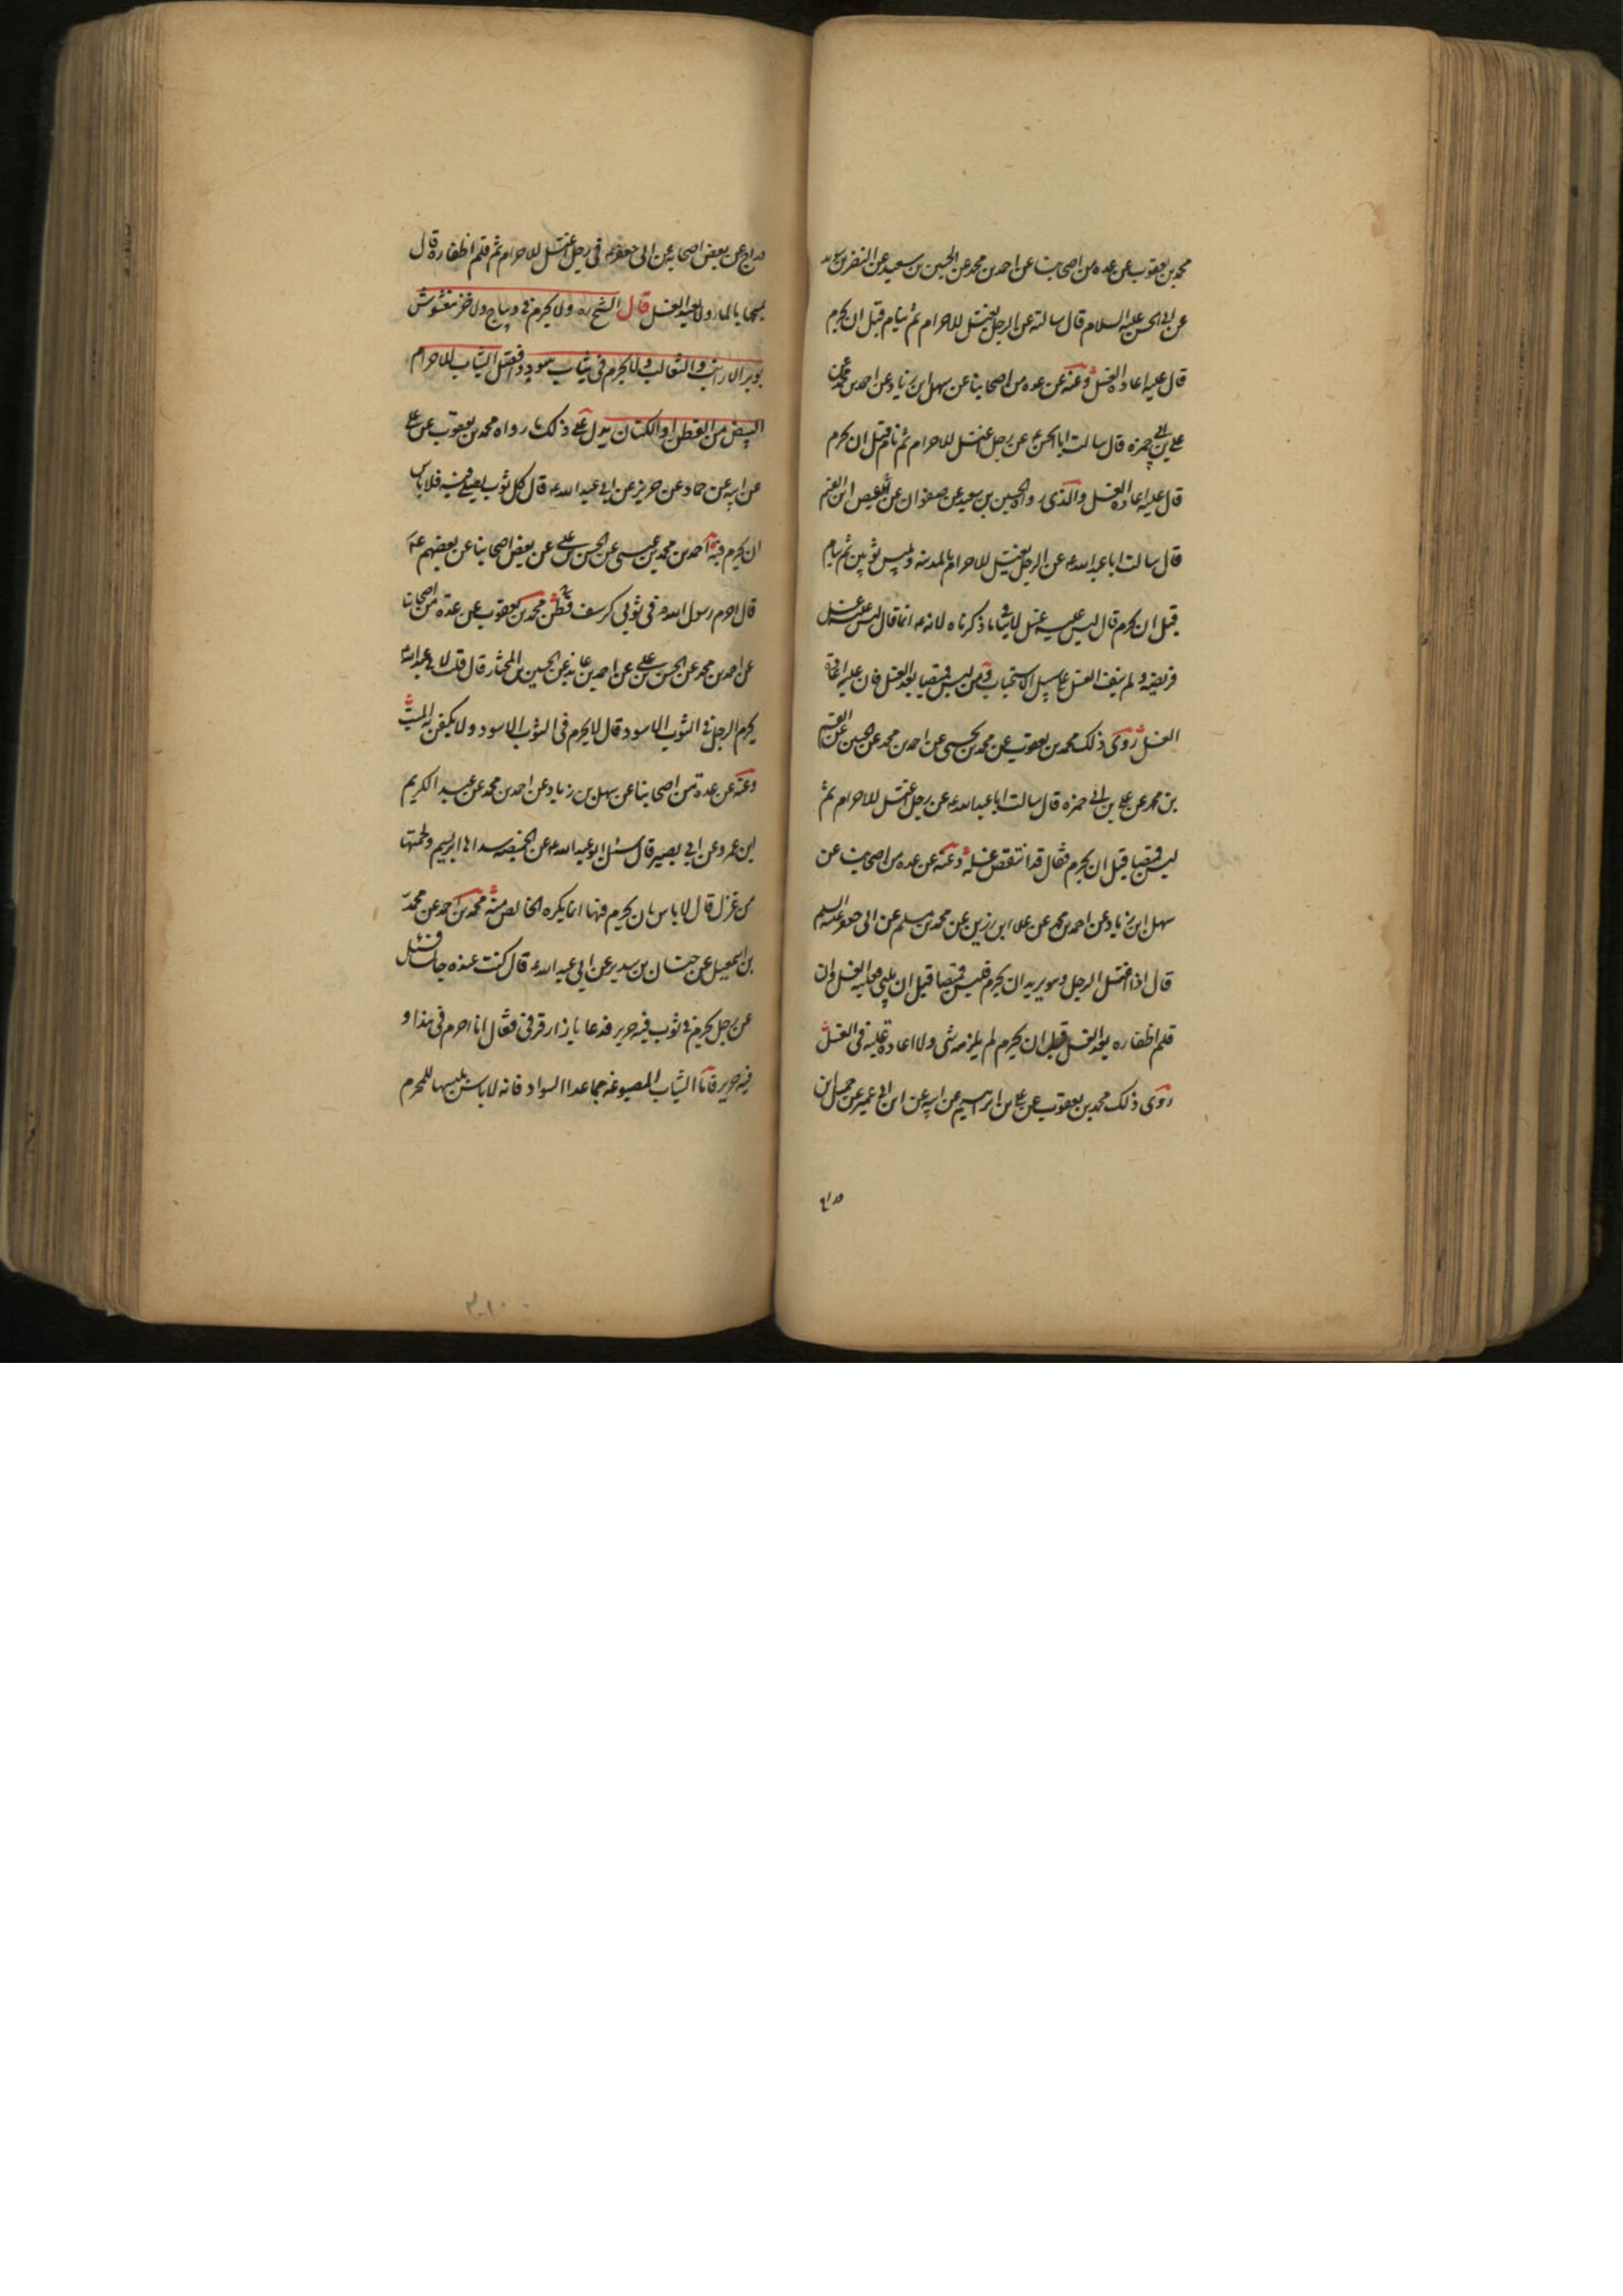 محمد بن يعقوب عن عده من اصحابنا عن احمد بن محمد عن الحسين بن سعيد عن النضر بن سويد
عن ابي الحسن عليه السلام قال سالته عن الرجل يغتسل للاحرام ثم ينام قبل ان يحرم
قال عليه اعادة الغسل وعنه عن عده من اصحابنا عن سهل ابن زياد عن احمد بن محمد عن
علي بن ابي حمزه قال سالت ابا الحسن ع عن رجل اغتسل للاحرام ثم نام قبل ان يحرم
قال عليه اعادة الغسل والذى رواه الحسين بن سعيد عن صفوان عن العيص ابن القسم
قال سالت ابا عبد الله ع عن الرجل يغتسل للاحرام بالمدينه ويلبس ثوبين ثم ينام
قبل ان يحرم قال ليس عليه غسل لاينافي ما ذكرناه لانه ع انما قال ليس عليه غسل
فريضه ولم ينف الغسل على سبيل الاستحباب ومن لبس قميصا بعد الغسل فان عليه اعادة
الغسل روى ذلك محمد بن يعقوب عن محمد بن يحيى عن احمد بن محمد عن الحسين عن القسم
بن محمد عن علي بن ابي حمزه قال سالت ابا عبد الله ع عن رجل اغتسل للاحرام ثم
لبس قميصا قبل ان يحرم فقال قد انتقض غسله وعنه عن عده من اصحابنا عن
سهل ابن زياد عن احمد بن محمد عن علا ابن رزين عن محمد بن مسلم عن ابي جعفر عليه السلم
قال اذا اغتسل الرجل وهو يريد ان يحرم فلبس قميصا قبل ان يلبي فعليه الغسل وان
قلم اظفاره بعد الغسل قبل ان يحرم لم يلزمه شى ولا اعادة عليه فى الغسل
روى ذلك محمد بن يعقوب عن علي بن ابرهيم عن ابيه عن ابن ابي عمير عن جميل بن
دراج عن بعض اصحابه عن ابى جعفر ع فى رجل اغتسل للاحرام ثم قلم اظفاره قال
يمسحها بالماء ولا يعيد الغسل قال الشيخ ره ولا يحرم في ديباج ولا خز مغشوش
بوبر الارانب والثعالب ولا يحرم فى ثياب سود وافضل الثياب للاحرام
البيض من القطن او الكتان يدل على ذلك ما رواه محمد بن يعقوب عن علي
عن ابيه عن حماد عن حريز عن ابي عبد الله ع قال كل ثوب يصلى فيه فلا باس
ان يحرم فيه احمد بن محمد بن عيسى عن الحسن بن علي عن بعض اصحابنا عن بعضهم ع
قال احرم رسول الله ص فى ثوبى كرسف قطن محمد بن يعقوب عن عدة من اصحابنا
عن احمد بن محمد عن الحسن بن علي عن احمد بن عايذ عن الحسين بن المختار قال قلت لابي عبد الله ع
يحرم الرجل في الثوب الاسود قال لا يحرم فى الثوب الاسود ولا يكفن به الميت
وعنه عن عدة من اصحابنا عن سهل بن زياد عن احمد بن محمد عن عبد الكريم
ابن عمرو عن ابي بصير قال سئل ابو عبد الله ع عن الخميصه سداها ابريسم ولحمتها
من غزل قال لا باس بان يحرم فيها انما يكره الخالص منه محمد بن احمد عن محمد
بن اسمعيل عن حنان بن سدير عن ابي عبد الله ع قال كنت عنده جالسا فسئل
عن رجل يحرم في ثوب فيه حرير فدعا بازار قرقبى فقال انا احرم فى هذا و
فيه حرير فاما الثياب المصبوغه مما عدا السواد فانه لا باس بلبسها للمحرم